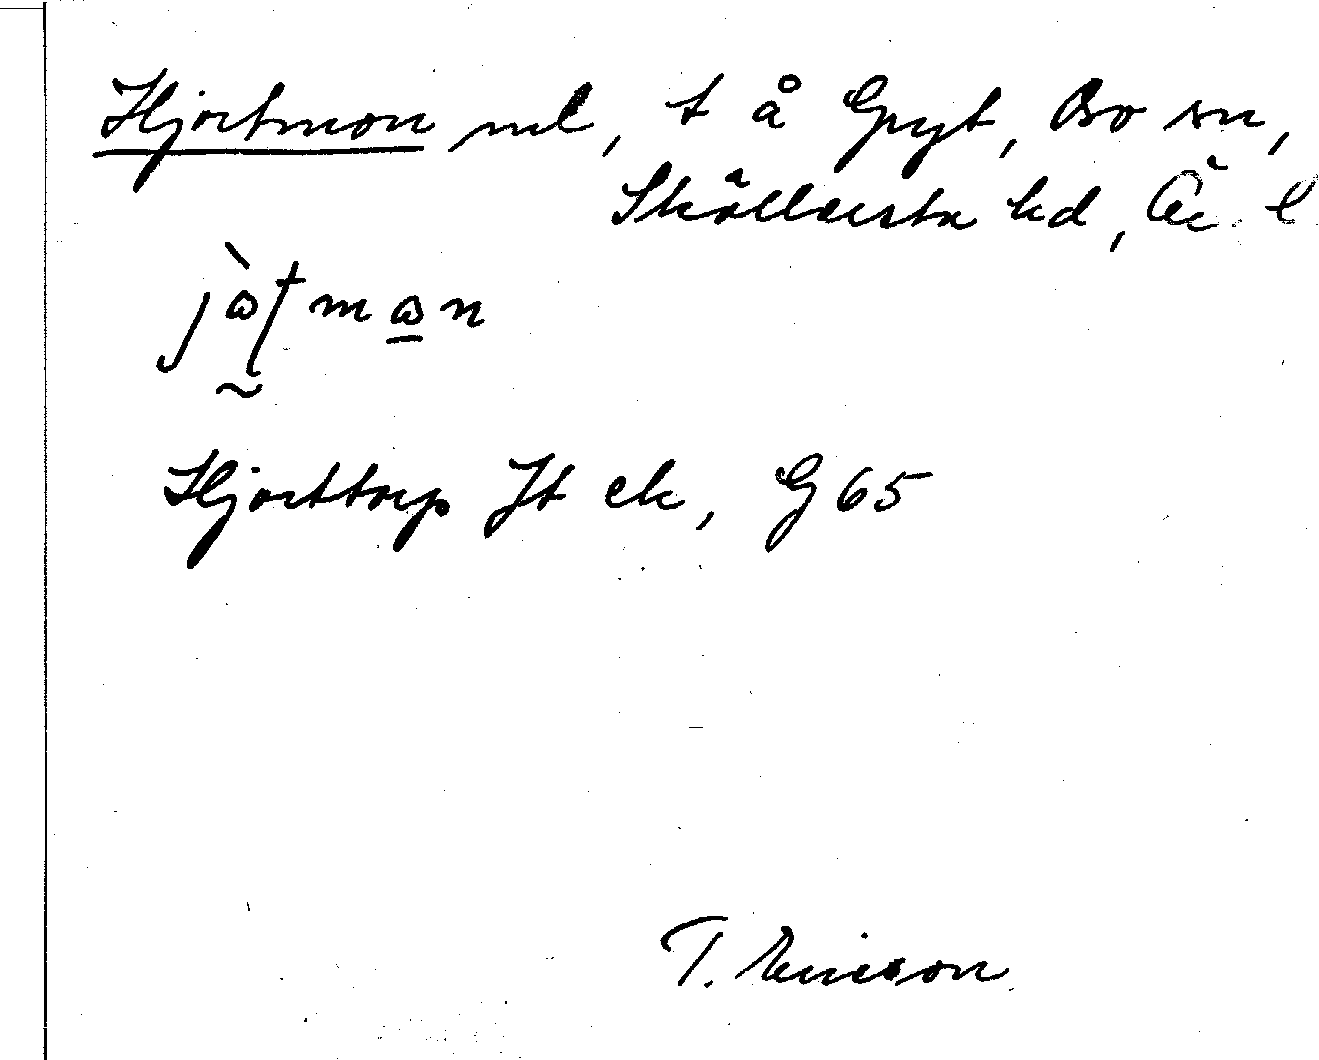 Hjortmon ml, t å Gryt, Bo sn,
Sköllersta hd, Ör l
Hjorttorp Jt ek, G 65
T. Ericson